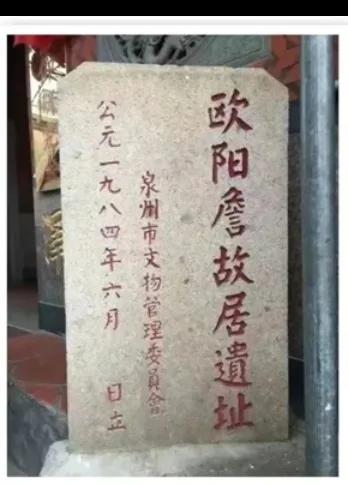 欧阳詹故居遺址
泉州市文物管理委員會
公元一九八四年六月 日立